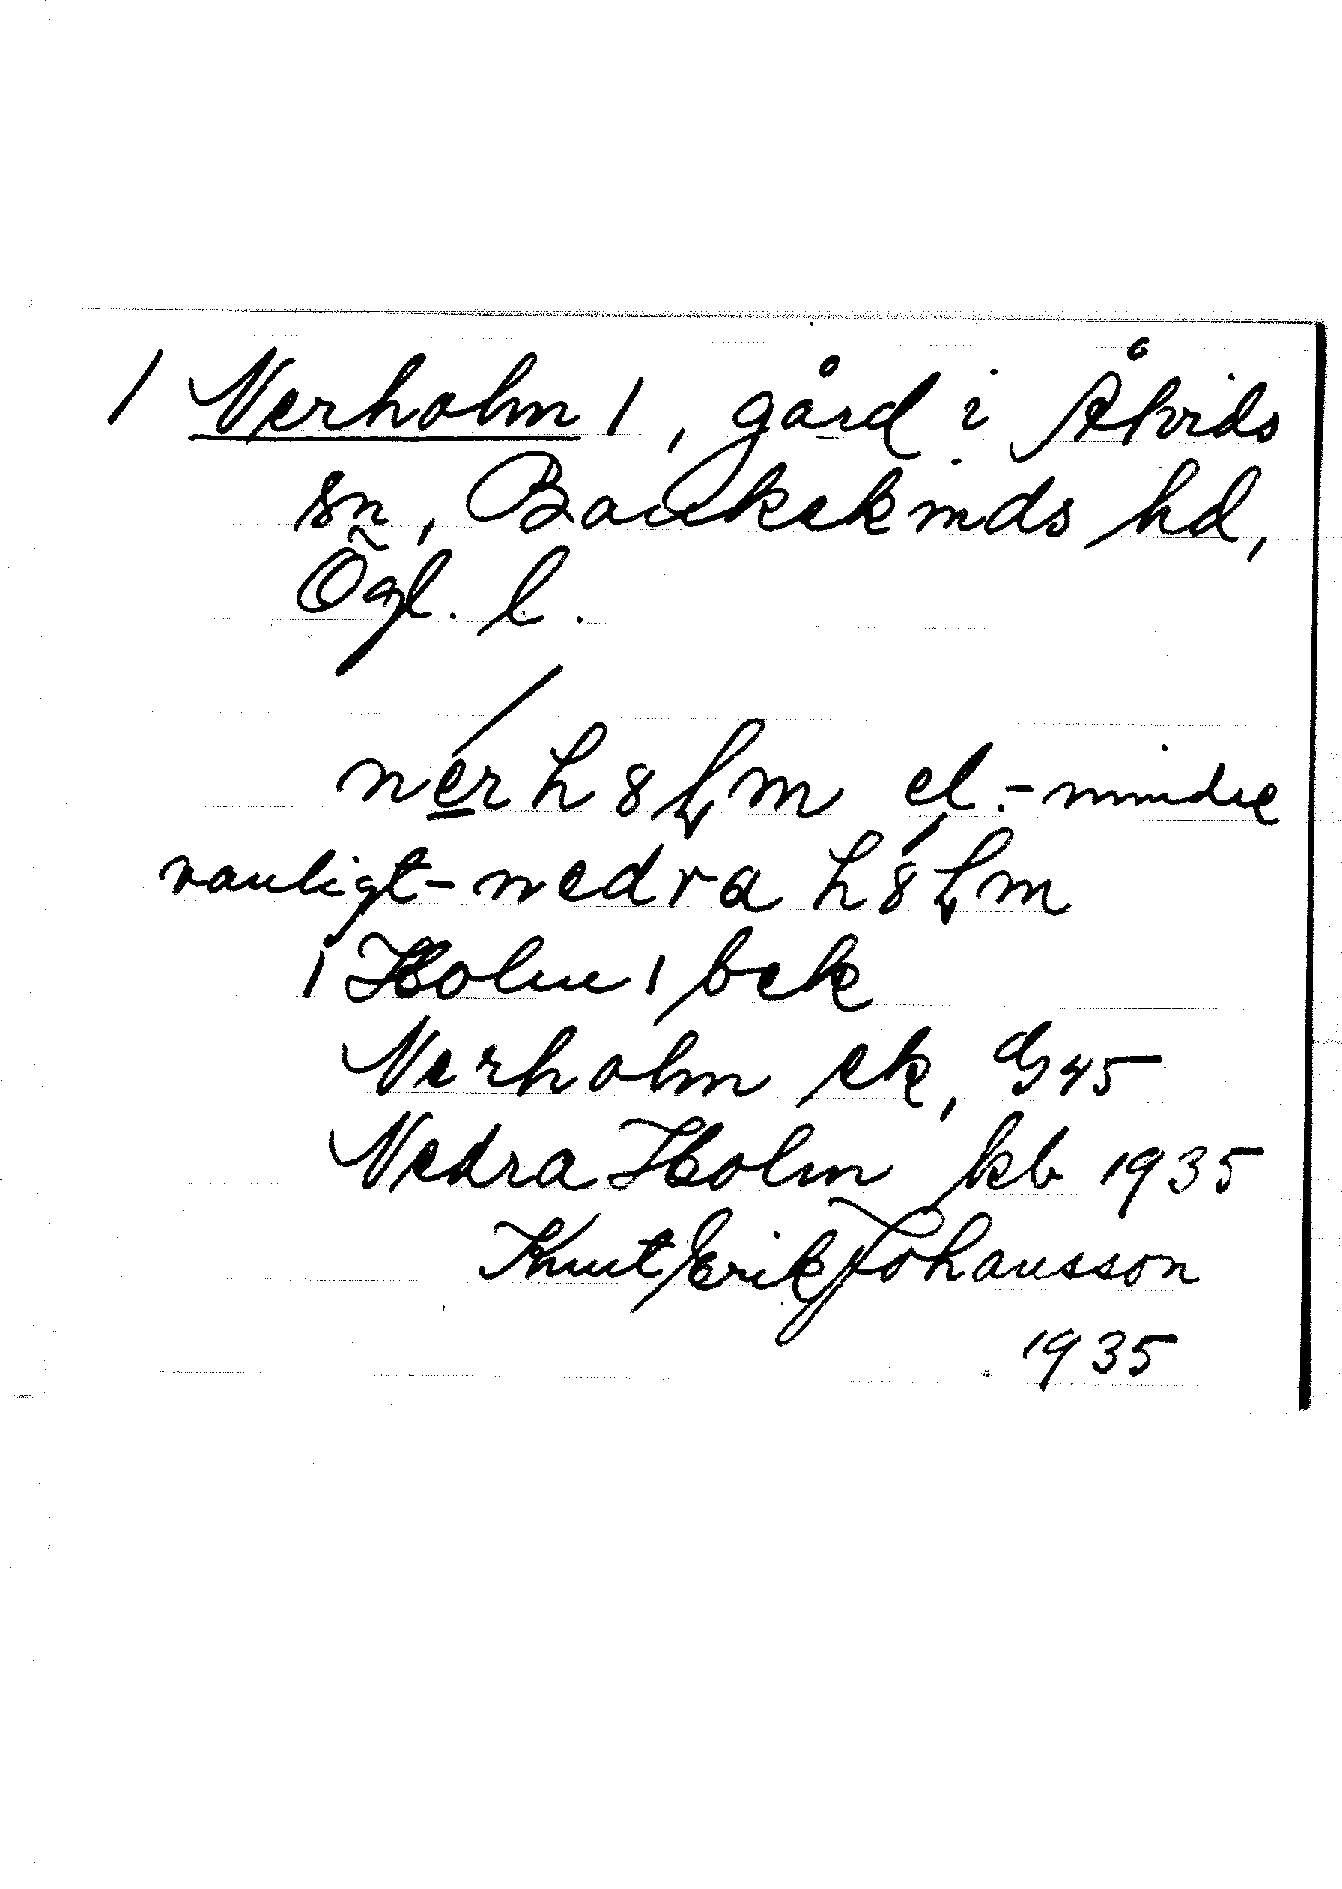 / Nerholm /, gård i Åtvids
sn, Bankekinds hd,
Ögl. l.
nerh8lm el. - mindre
vanligt - nedra h8lm
/ Holm / bek
Nerholm ek, G45
Nedra Holm kb 1935
Knut Erik Johansson
1935